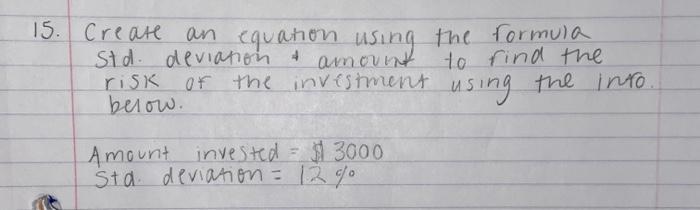 15. Create an equation using the formula
Std. deviation + amount to find the
risk of the investment using the info.
below.
Amount invested = $3000
Std. deviation = 12%